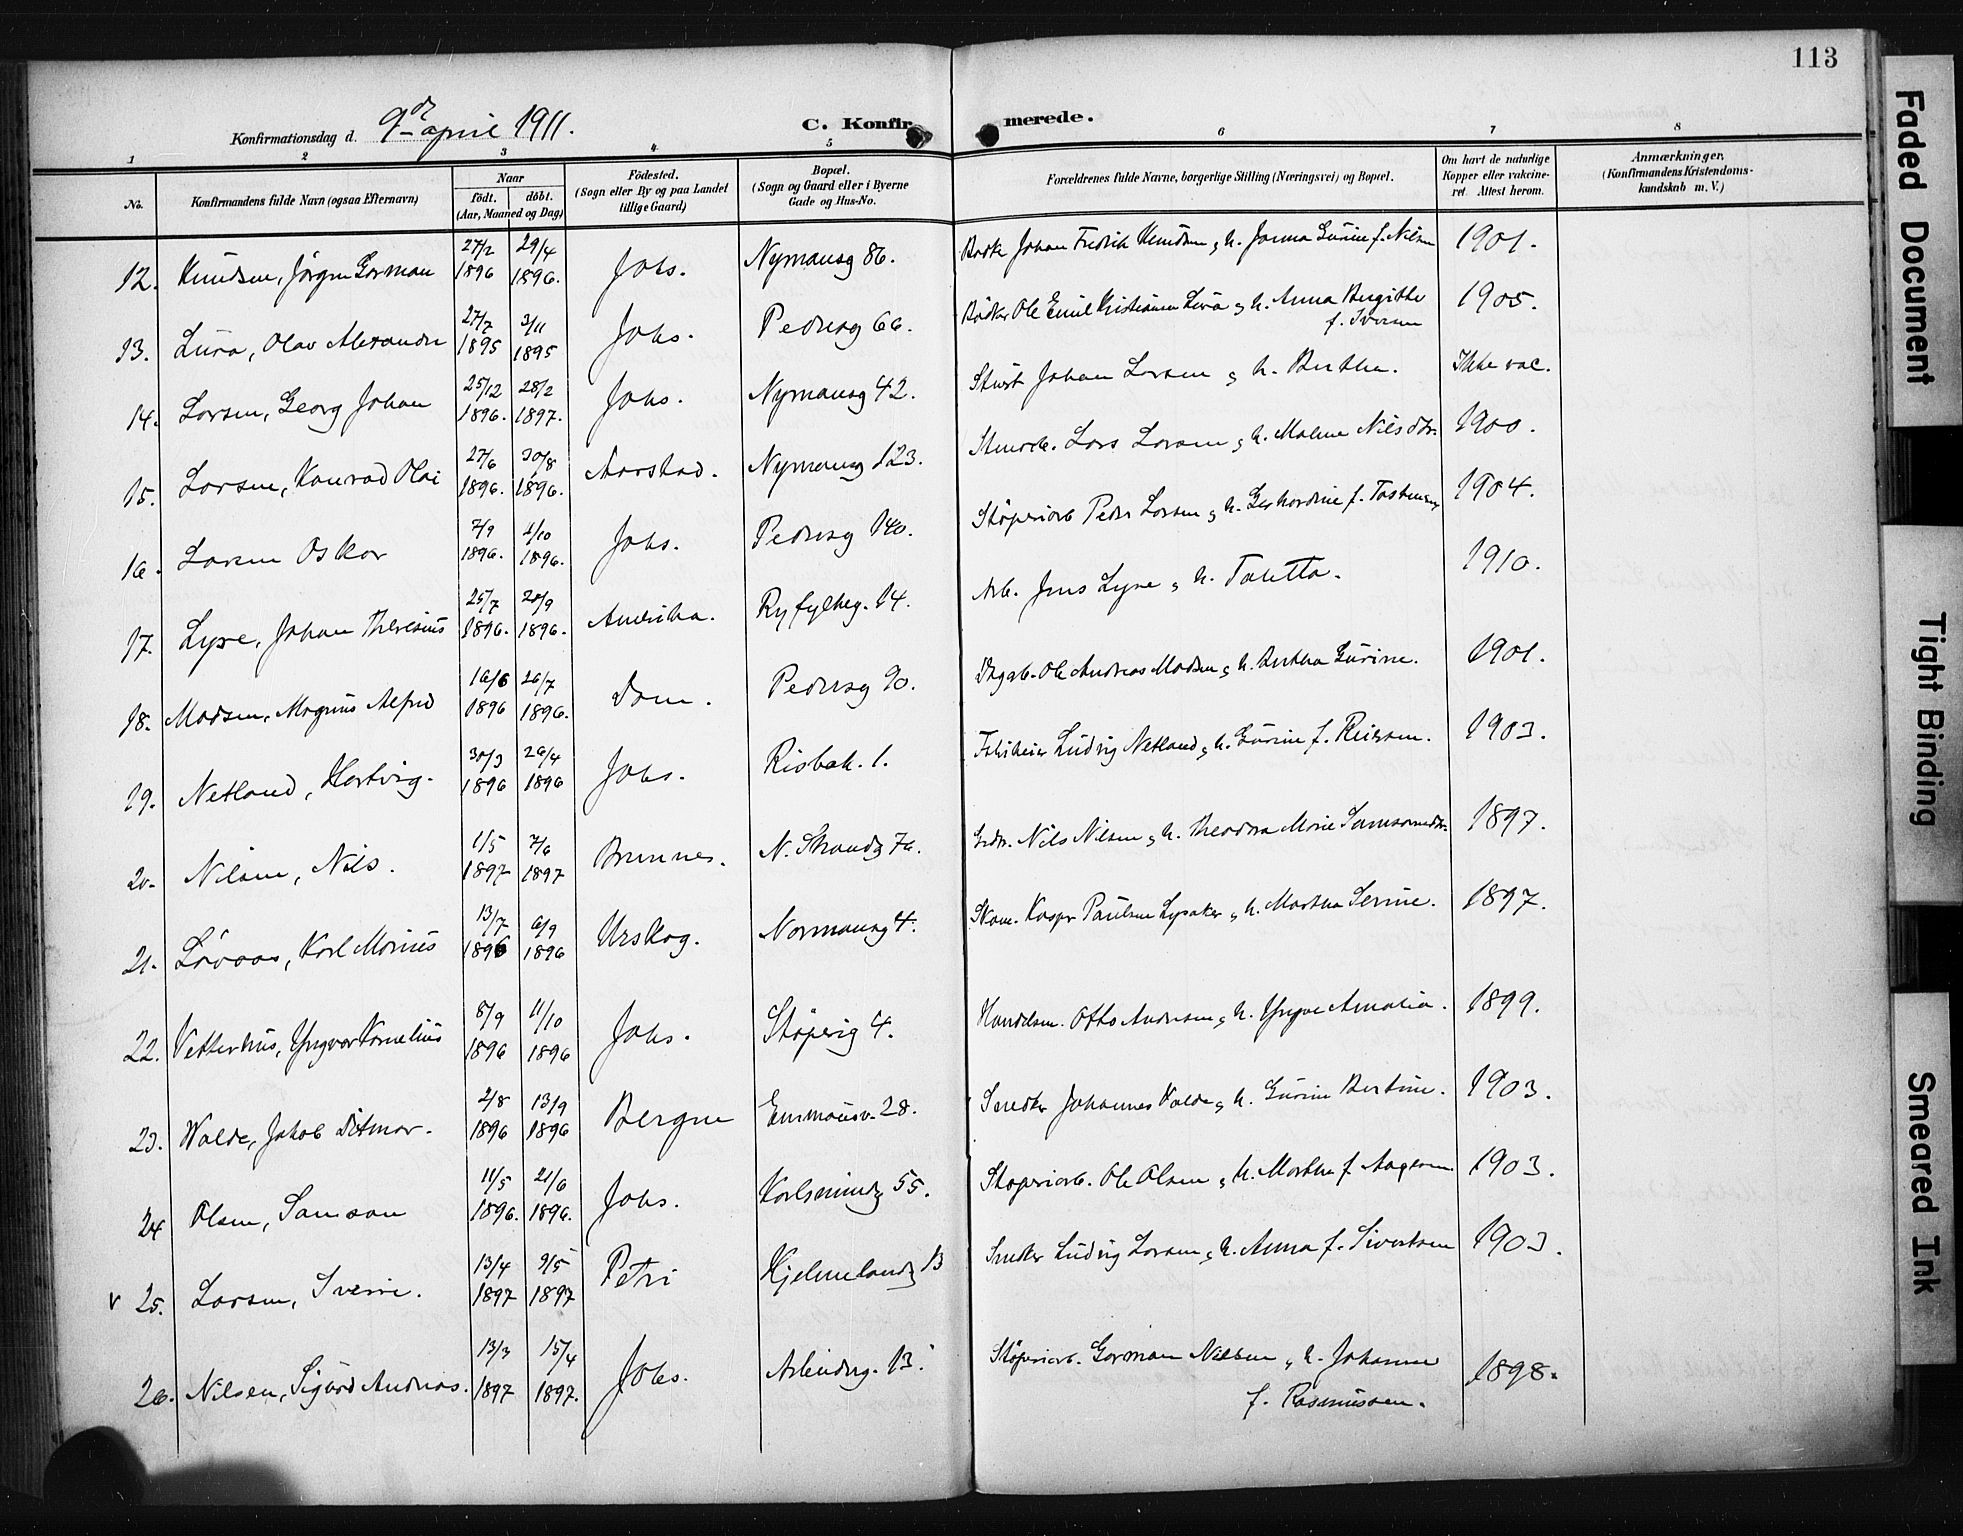 113
Konfirmationsdag d. 9de april 1911.
C. Konfirmerede.
1 2 3 4 5 6 7 8
No.
Konfirmandens fulde Navn (ogsaa Efternavn)
Naar
født. døbt.
(Aar, Maaned og Dag)
Födested.
(Sogn eller By og paa Landet
tillige Gaard)
Bopæl.
(Sogn og Gaard eller i Byerne
Gade og Hus-No.
Forældrenes fulde Navne, borgerlige Stilling (Næringsvei) og Bopæl.
Om havt de naturlige
Kopper eller vakcine-
ret. Attest herom.
Anmærkninger,
(Konfirmandens Kristendoms-
kundskab m. V.)
12. Knudsen, Jörgen Gorman 27/2 1896 29/4 1896. Johs. Nymansg 86. Johan Fredrik Knudsen & h. Janna Gurine f. Nilsen 1901.
13. Lura, Olav Alexander 27/7 1895 3/11 1895 Johs. Pedersg 66. Bödker Ole Emil Kristiansen Lura & h. Anna Birgitte
f. Iversen 1905.
14. Larsen, Georg Johan 25/12 1896. 28/2 1897. Johs. Nymansg 42. Johan Larsen & h. Berthe. Ikke vac.
15. Larsen, Konrad Olai 27/6 1896. 30/8 1896. Aarstad. Nymansg 123. Lars Larsen & h. Malene Nilsdtr. 1900.
16. Larsen Oskar 7/9 1896. 4/10 1896. Johs. Pedersg 140. Støperiarb Peder Larsen & h. Gerhardine f. Tastensen 1904.
17. Lyse, Johan Theresius 25/7 1896. 20/9 1896. Amerika. Ryfylkeg. 14. Arb. Jens Lyse & h. Taletta. 1910.
18. Madsen, Magnus Alfred 16/6 1896 26/7 1896. Dom. Pedersg 90. Ole Andreas Madsen & h. Bertha Gurine. 1901.
19. Netland, Hartvig. 30/3 1896 26/4 1896 Johs. Risbak. 1. Ludvig Netland & h. Gurine f. Reiersen. 1903.
20. Nilsen, Nils. 1/5 1897 7/6 1897 Bremnes. N. Strandg 76. Nils Nilsen & h. Theodora Marie Samsonsdtr. 1897.
21. Løvaas, Karl Marius 13/7 1896 6/9 1896 Urskog. Normansg 4. Kasper Paulsen Lysaker & h. Martha Serine. 1897.
22. Vetterhus, Yngvar Kornelius 8/9 1896 11/10 1896 Johs. Støperig 4. Handelsm. Otto Andersen & h. Yngve Amalia. 1899.
23. Walde, Jakob Ditmar. 2/8 1896 13/9 1896 Bergen Emmausv. 28. Snedker Johannes Valde & h. Gurine Bertine. 1903.
24 Olsen, Samson 11/5 1896. 21/6 1896. Johs. Karlsmindeg 55. Støperiarb. Ole Olsen & h. Marthe f. Aagesen 1903.
v 25. Larsen, Sverre. 13/4 1897 9/5 1897 Petri Hjelmelandsg 13 Snedker Ludvig Larsen & h. Anna f. Sivertsen 1903.
26. Nilsen, Sigurd Andreas. 13/3 1897 15/4 1897. Johs. Arbeidsg. 13. Støperiarb. Gorman Nilsen & h. Johanne
f. Rasmussen. 1898.
Faded Document
Tight Binding
Smeared Ink